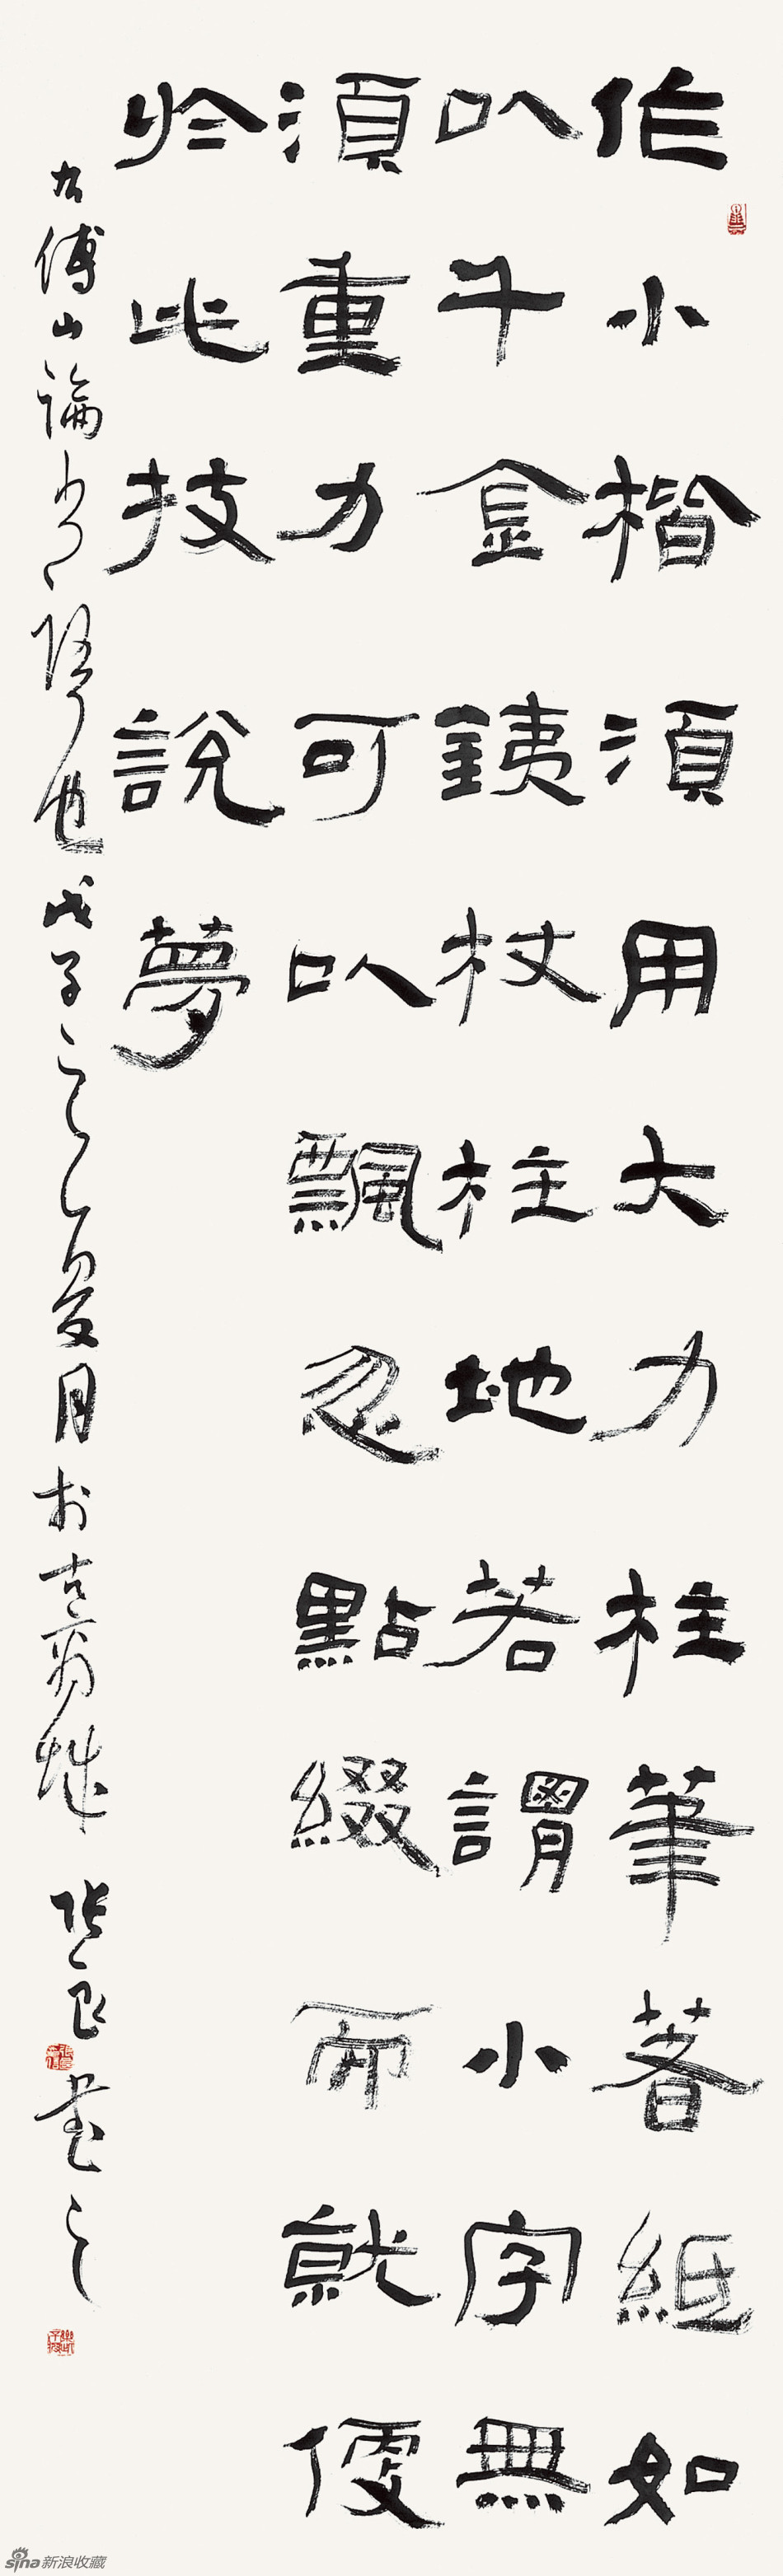 作小楷須用大力柱筆著紙如
以千金鐵杖柱地若謂小字無
須重力可以飄忽點綴而就便
於此技說夢
右傅山論書隨也戊子之夏月於古
張良書之
sina新浪收藏